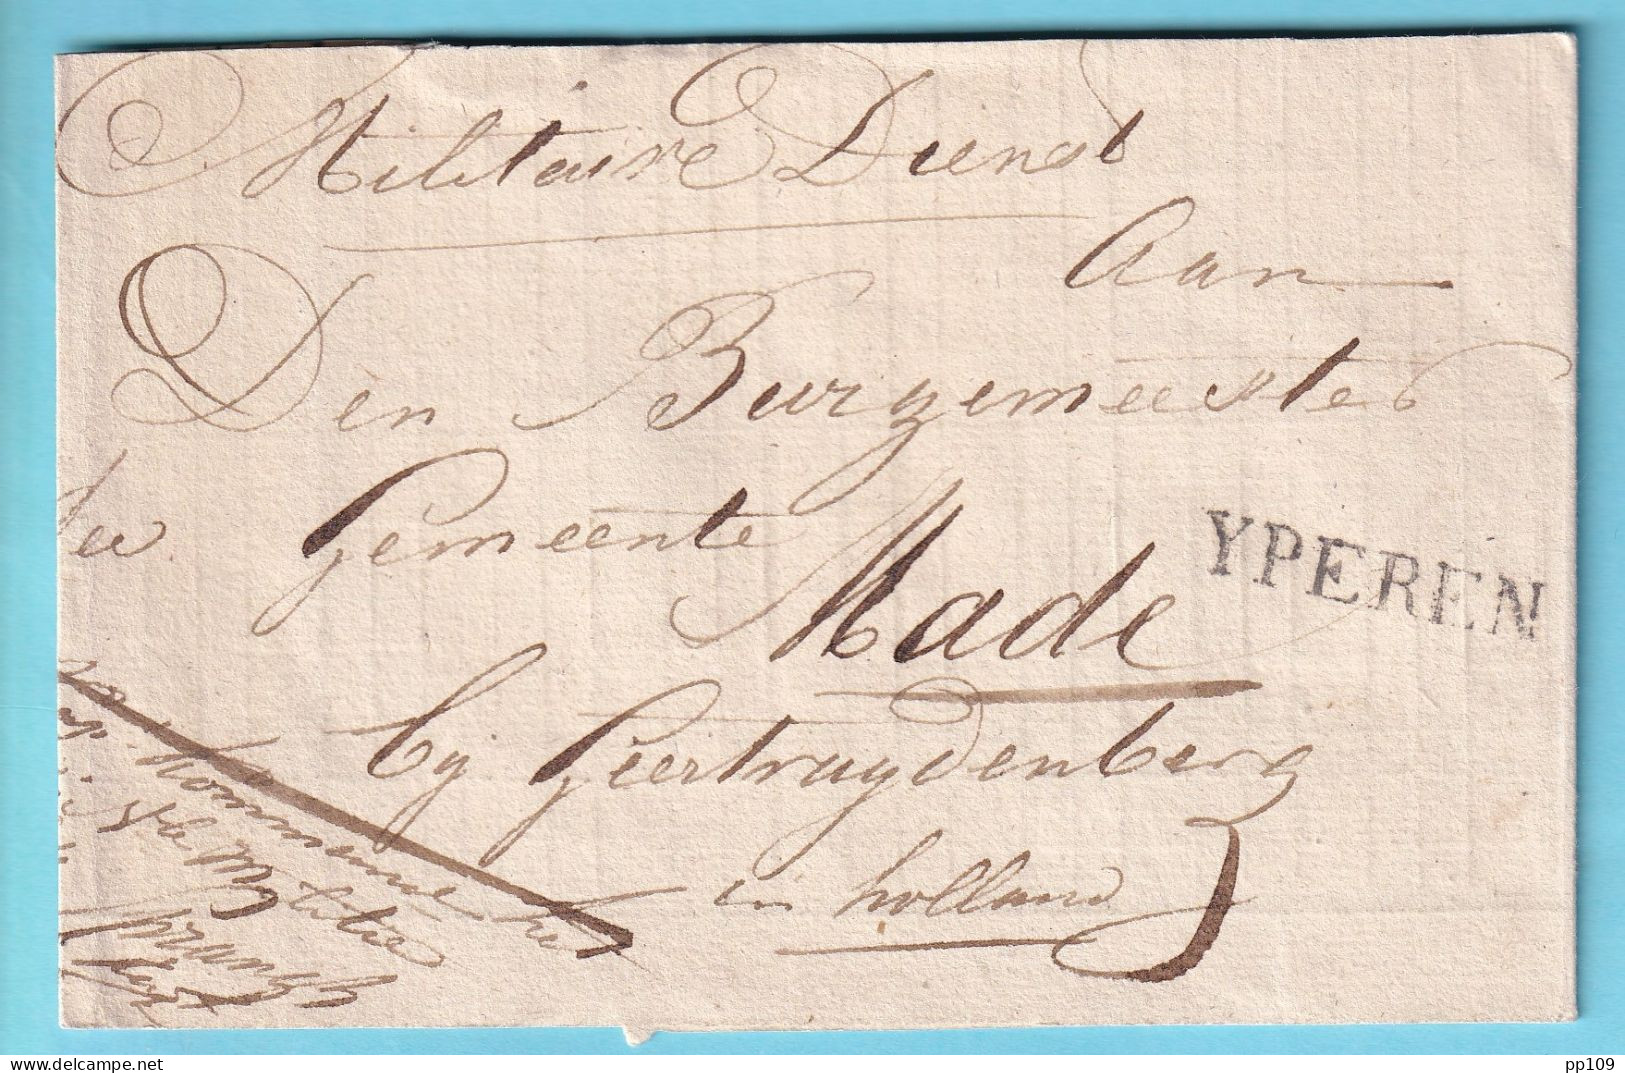 Militaire Dienst
Aan
Den Burgemeester
der Gemeente
Made
YPEREN
by Geertruydenberg
in holland
kommand
Militie
delcampe.net
pp109